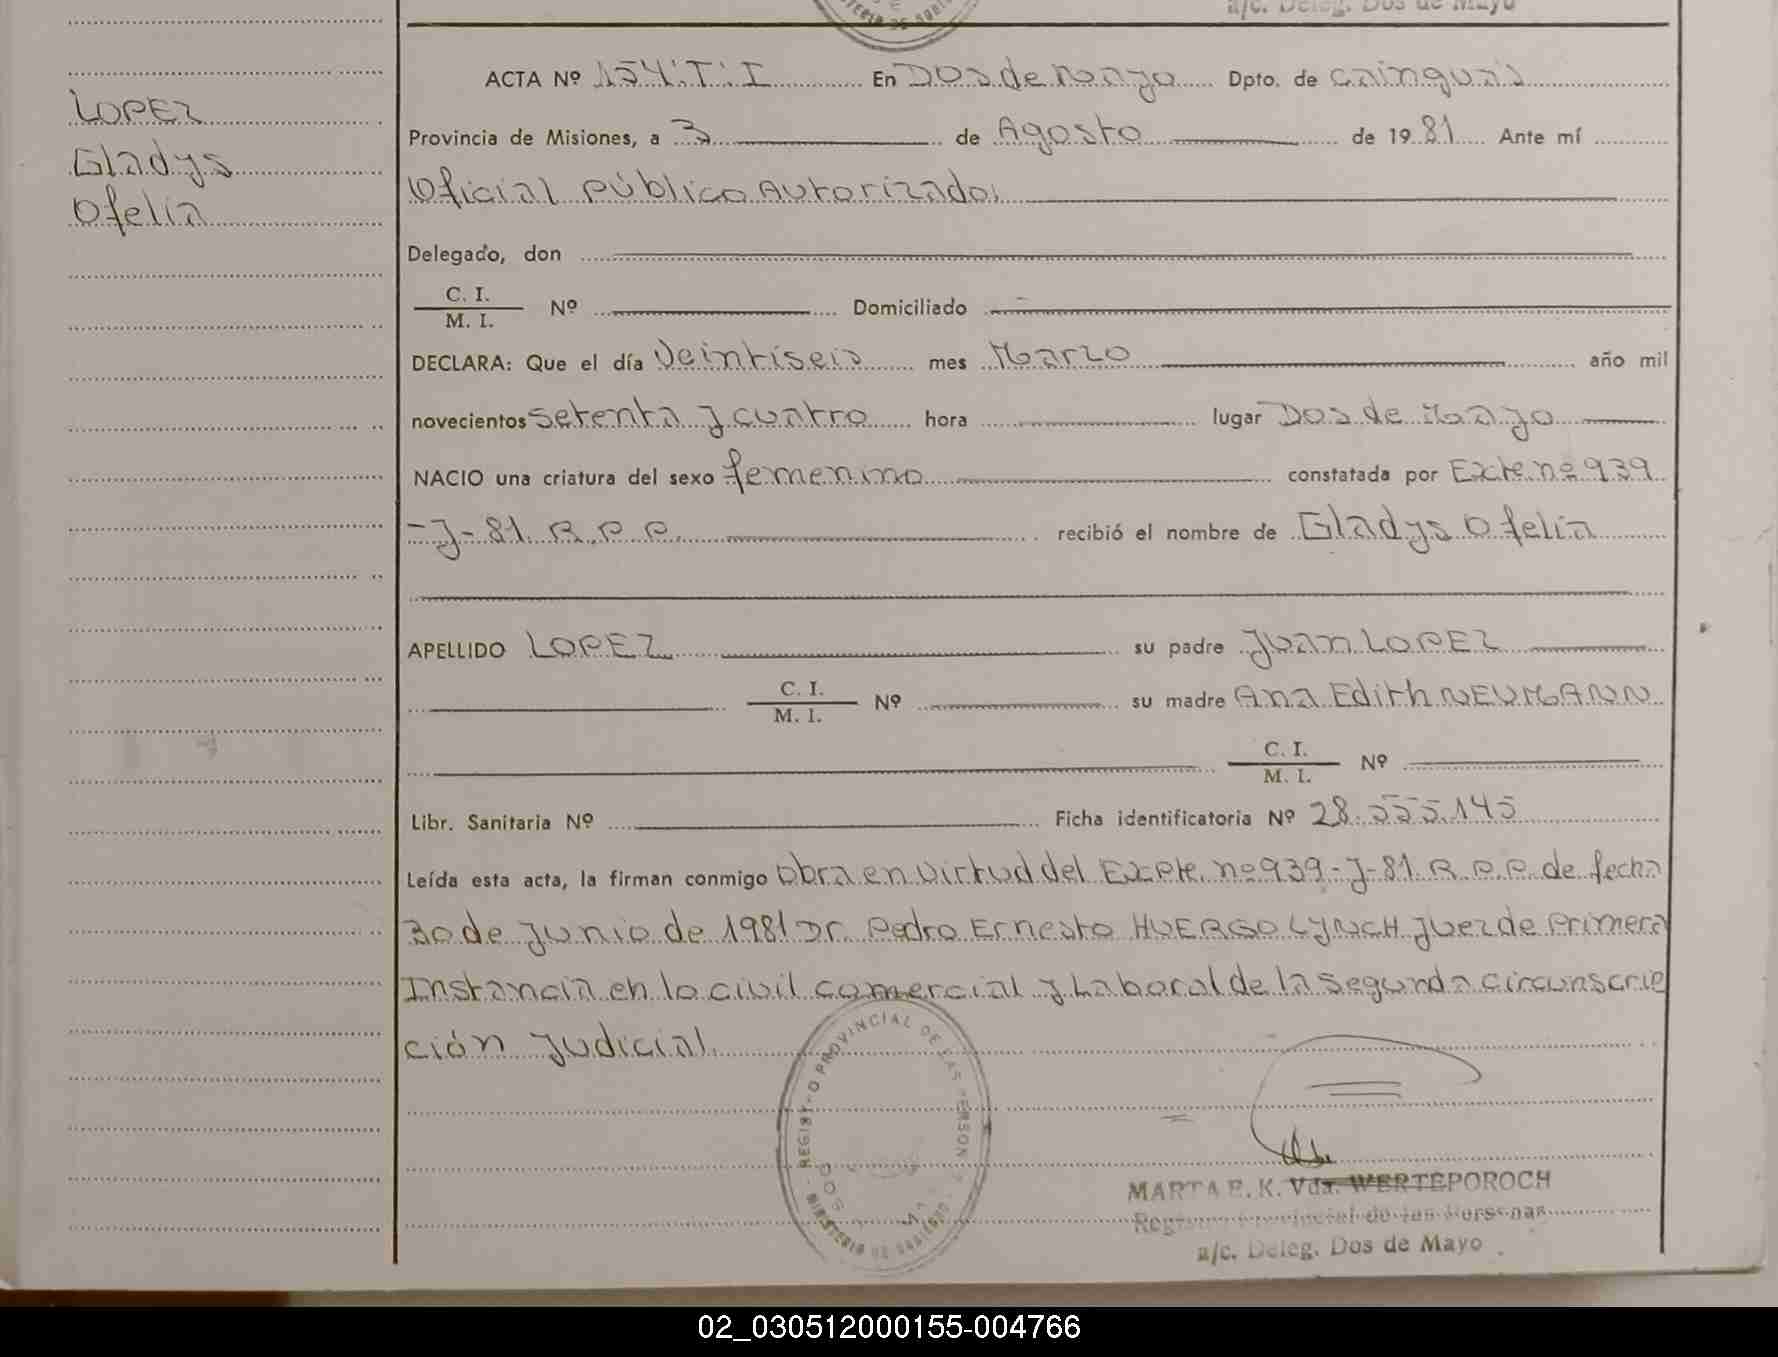 a/c. Deleg. Dos de Mayo
LOPEZ
Gladys
Ofelia
ACTA Nº 154.T.I En Dos de Mayo Dpto. de Cainguás
Provincia de Misiones, a 3 de Agosto de 1981 Ante mí
Oficial Público Autorizado,
Delegado, don
C. I.
M. I. Nº Domiciliado
DECLARA: Que el día Veintiseis mes Marzo año mil
novecientos setenta y cuatro hora lugar Dos de Mayo
NACIO una criatura del sexo femenino constatada por Expte. nº 939
-J-81 R.P.P. recibió el nombre de Gladys Ofelia
APELLIDO LOPEZ su padre Juan LOPEZ
C. I.
M. I. Nº su madre Ana Edith NEUMANN
C. I.
M. I. Nº
Libr. Sanitaria Nº Ficha identificatoria Nº 28.555.145
Leída esta acta, la firman conmigo Obra en virtud del Expte. nº 939-J-81 R.P.P. de fecha
30 de Junio de 1981 Dr. Pedro Ernesto HUERGO LYNCH Juez de Primera
Instancia en lo civil comercial y Laboral de la segunda circunscrip
ción Judicial
REGISTRO PROVINCIAL DE LAS PERSONAS
MINISTERIO DE GOBIERNO
MARTA E. K. Vda. WERTEPOROCH
Registro Provincial de las Personas
a/c. Deleg. Dos de Mayo
02_030512000155-004766